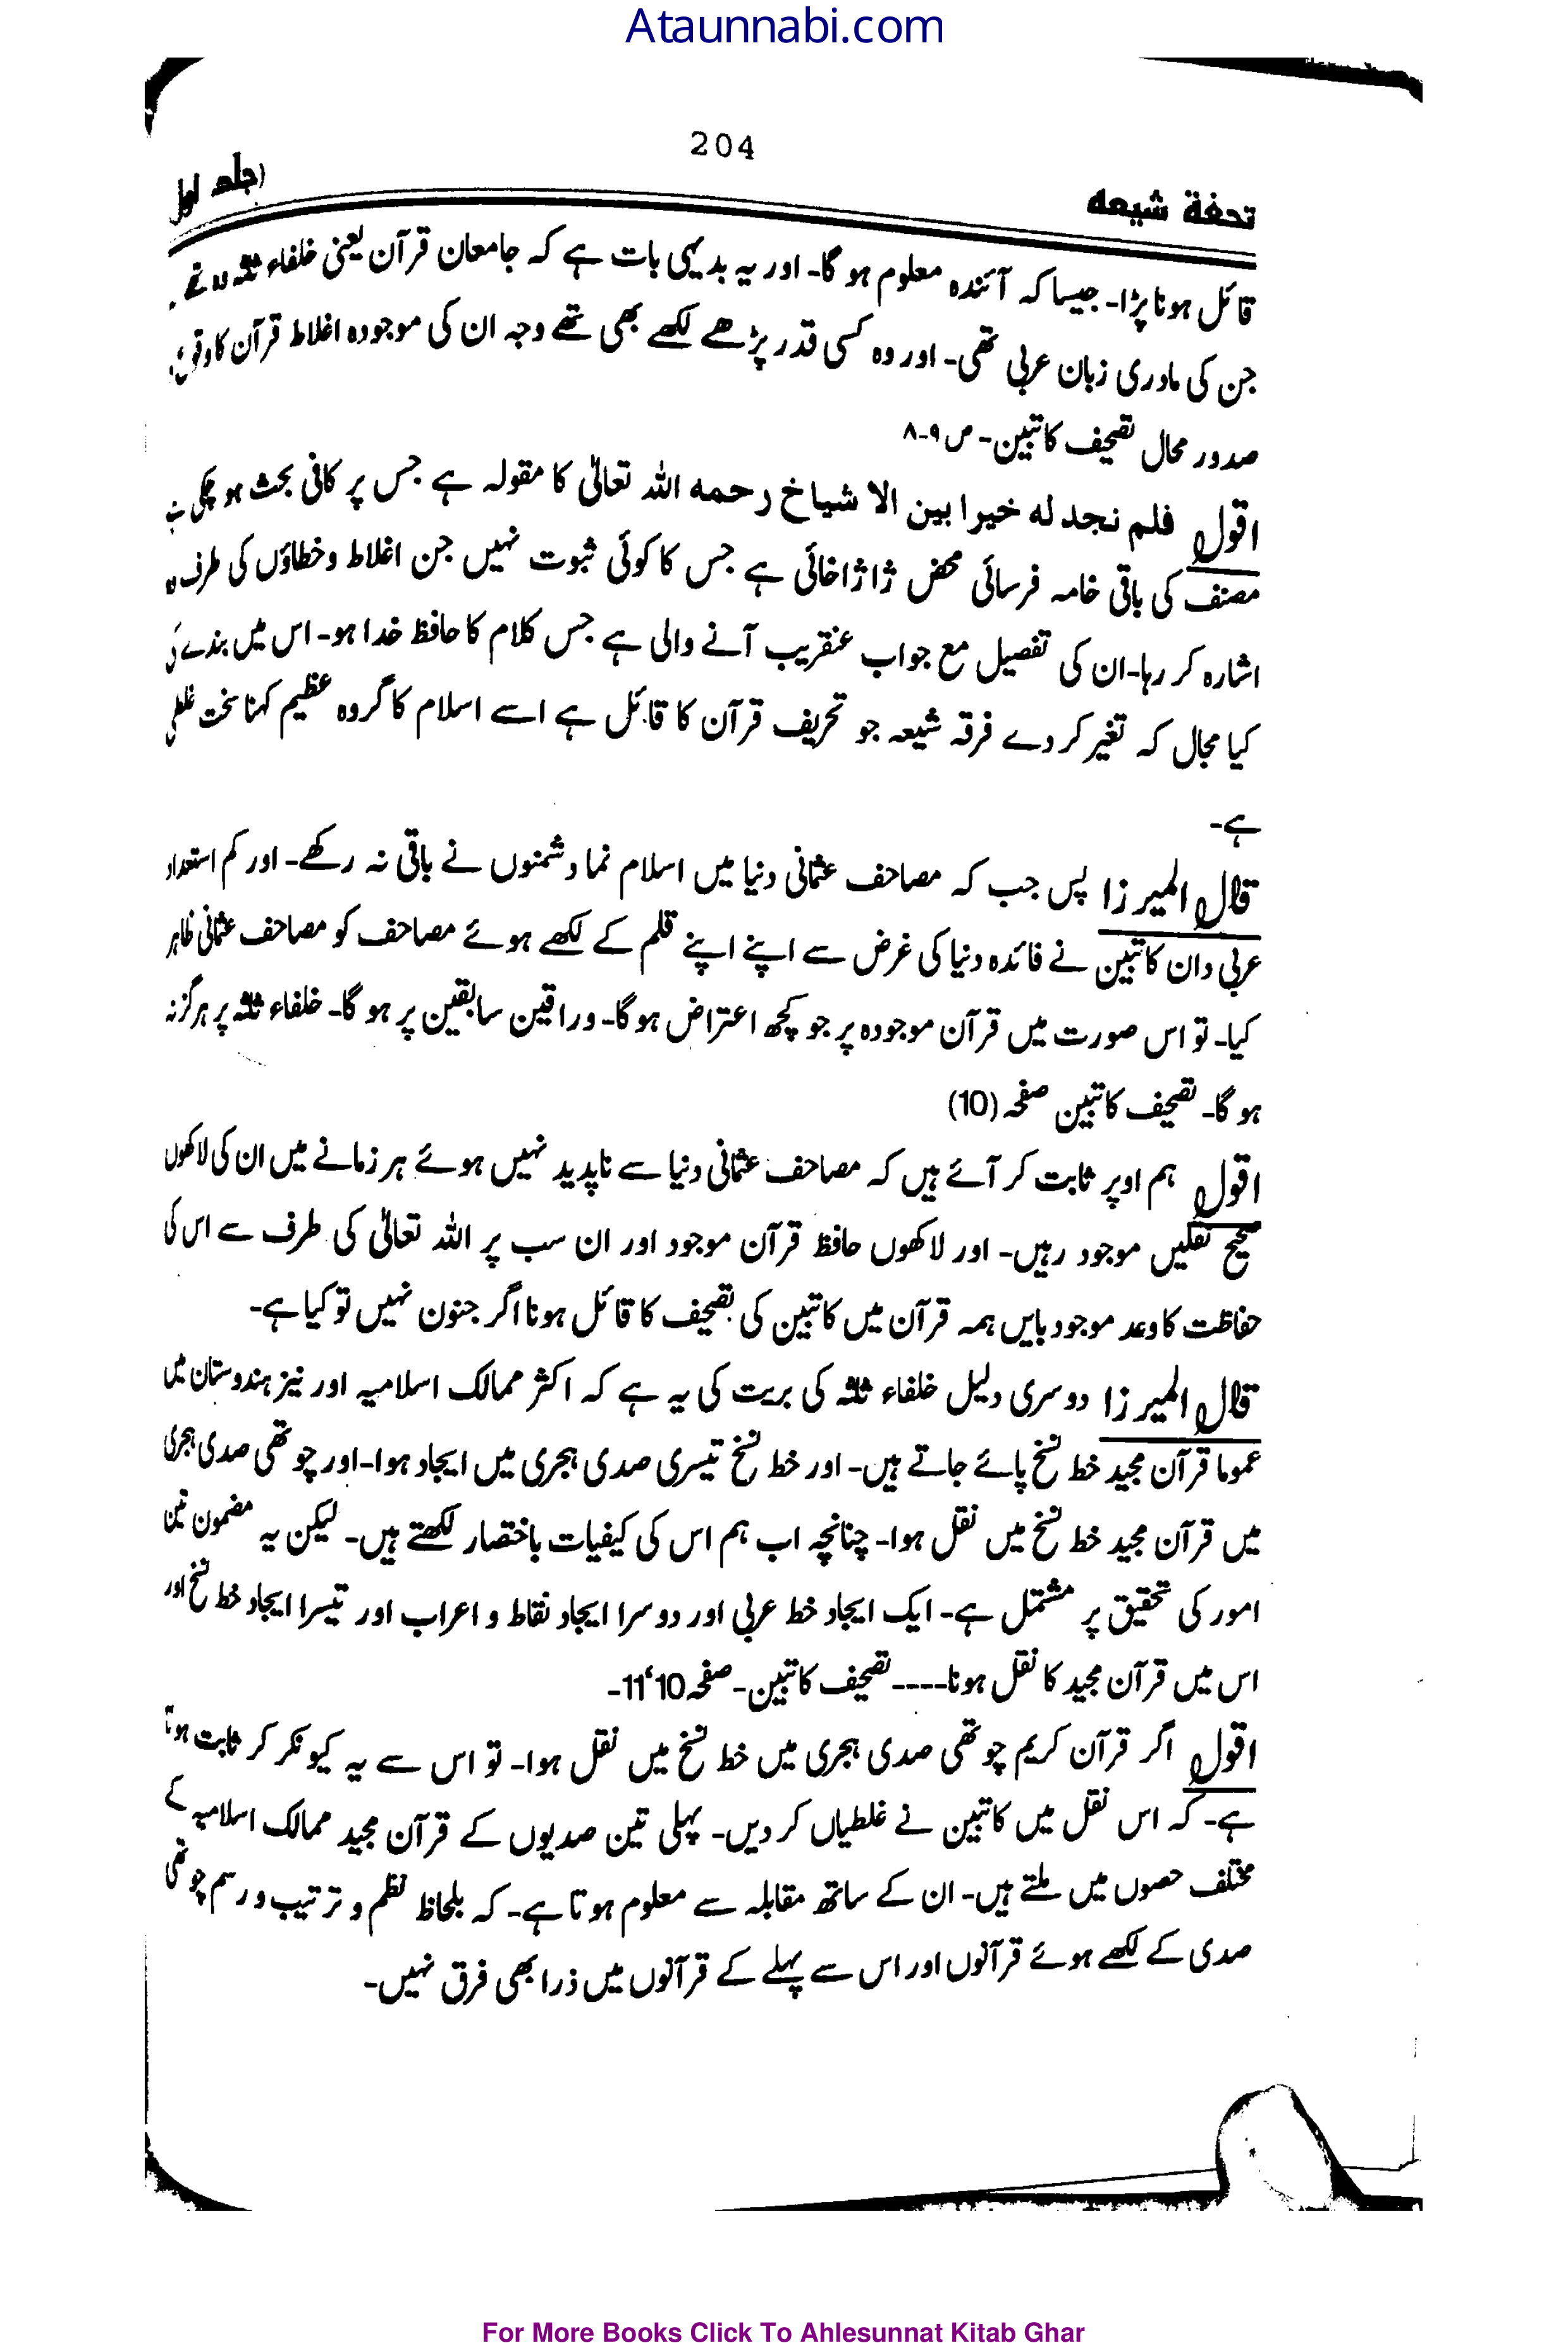 Ataunnabi.com
204
تحفة شیعه
(جلد اول
قائل ہونا پڑا۔ جیسا کہ آئندہ معلوم ہو گا۔ اور یہ بدیہی بات ہے کہ جامعان قرآن یعنی خلفاء ثلثہ وہ تھے
جن کی مادری زبان عربی تھی۔ اور وہ کسی قدر پڑھے لکھے بھی تھے وجہ ان کی موجودہ اغلاط قرآن کا وقوع،
صدور محال تصحیف کاتبین۔ ص ۹۔۸
اقول فلم نجد له خیرا بین الا شیاخ رحمه الله تعالیٰ کا مقولہ ہے جس پر کافی بحث ہو چکی ہے
مصنف کی باقی خامہ فرسائی محض ژاژا خائی ہے جس کا کوئی ثبوت نہیں جن اغلاط و خطاؤں کی طرف وہ
اشارہ کر رہا۔ ان کی تفصیل مع جواب عنقریب آنے والی ہے جس کلام کا حافظ خدا ہو۔ اس میں بندے کی
کیا مجال کہ تغیر کر دے فرقہ شیعہ جو تحریف قرآن کا قائل ہے اسے اسلام کا گروہ عظیم کہنا سخت غلطی
ہے۔
قال المیرزا پس جب کہ مصاحف عثمانی دنیا میں اسلام نما دشمنوں نے باقی نہ رکھے۔ اور کم استعداد
عربی دان کاتبین نے فائدہ دنیا کی غرض سے اپنے اپنے قلم کے لکھے ہوئے مصاحف کو مصاحف عثمانی ظاہر
کیا۔ تو اس صورت میں قرآن موجودہ پر جو کچھ اعتراض ہو گا۔ وراقین سابقین پر ہو گا۔ خلفاء ثلثہ پر ہرگز نہ
ہو گا۔ تصحیف کاتبین صفحہ (10)
اقول ہم اوپر ثابت کر آئے ہیں کہ مصاحف عثمانی دنیا سے ناپدید نہیں ہوئے ہر زمانے میں ان کی لاکھوں
صحیح نقلیں موجود رہیں۔ اور لاکھوں حافظ قرآن موجود اور ان سب پر اللہ تعالیٰ کی طرف سے اس کی
حفاظت کا وعد موجود بایں ہمہ قرآن میں کاتبین کی تصحیف کا قائل ہونا اگر جنون نہیں تو کیا ہے۔
قال المیرزا دوسری دلیل خلفاء ثلثہ کی بریت کی یہ ہے کہ اکثر ممالک اسلامیہ اور نیز ہندوستان میں
عموما قرآن مجید خط نسخ پائے جاتے ہیں۔ اور خط نسخ تیسری صدی ہجری میں ایجاد ہوا۔ اور چوتھی صدی ہجری
میں قرآن مجید خط نسخ میں نقل ہوا۔ چنانچہ اب ہم اس کی کیفیات باختصار لکھتے ہیں۔ لیکن یہ مضمون تین
امور کی تحقیق پر مشتمل ہے۔ ایک ایجاد خط عربی اور دوسرا ایجاد نقاط و اعراب اور تیسرا ایجاد خط نسخ اور
اس میں قرآن مجید کا نقل ہونا۔۔۔۔ تصحیف کاتبین۔ صفحہ 10‘11۔
اقول اگر قرآن کریم چوتھی صدی ہجری میں خط نسخ میں نقل ہوا۔ تو اس سے یہ کیونکر کر ثابت ہوتا
ہے۔ کہ اس نقل میں کاتبین نے غلطیاں کر دیں۔ پہلی تین صدیوں کے قرآن مجید ممالک اسلامیہ کے
مختلف حصوں میں ملتے ہیں۔ ان کے ساتھ مقابلہ سے معلوم ہوتا ہے۔ کہ بلحاظ نظم و ترتیب و رسم چوتھی
صدی کے لکھے ہوئے قرآنوں اور اس سے پہلے کے قرآنوں میں ذرا بھی فرق نہیں۔
For More Books Click To Ahlesunnat Kitab Ghar